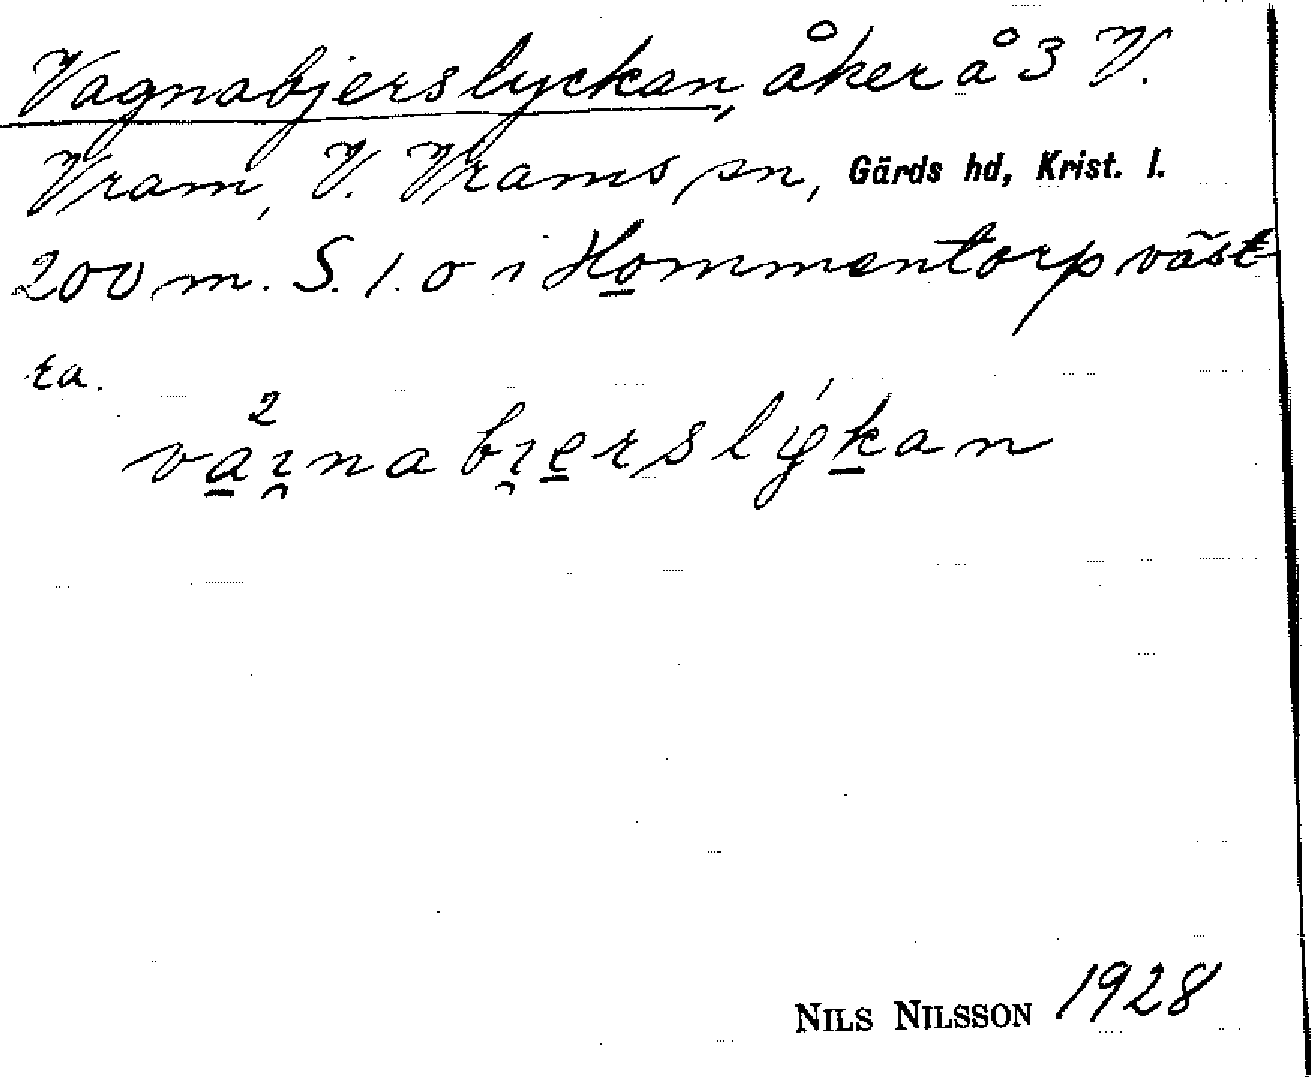 Vagnabjerslyckan, åker å 3 V.
Vram, V. Vrams sn, Gärds hd, Krist. l.
200 m. S. l. o i Hommentorp väst
ra.
NILS NILSSON 1928